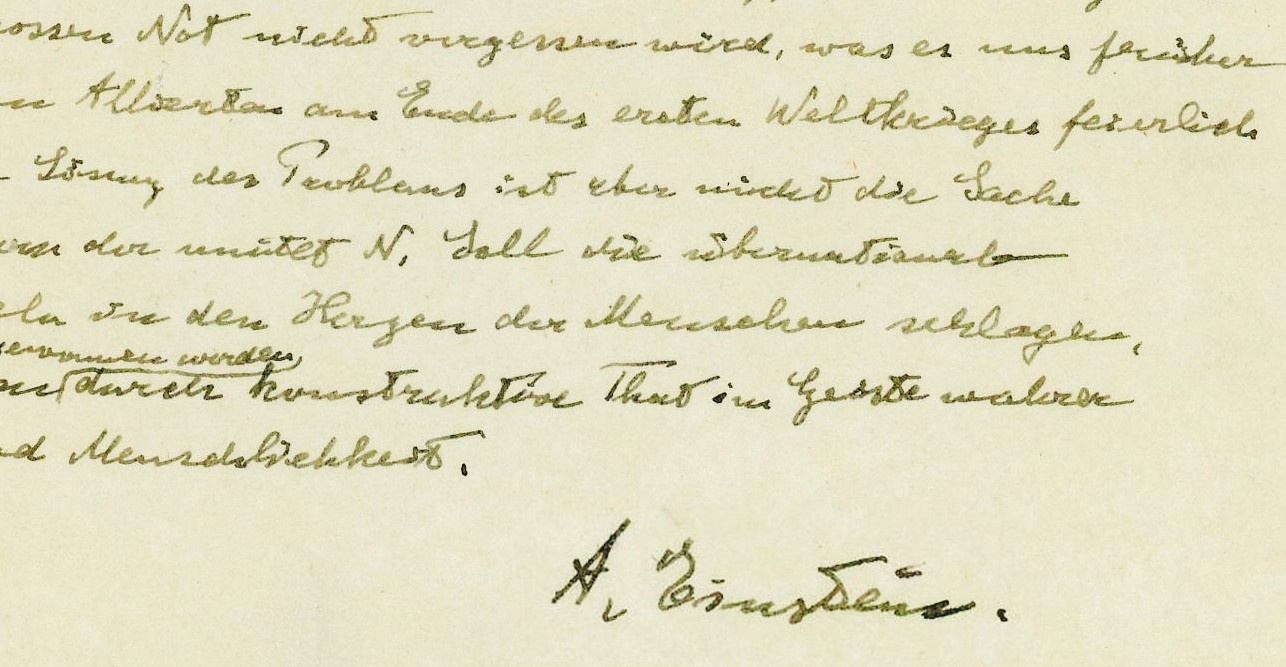 ossen Not nicht vergessen wird, was es uns früher
n Alliierten am Ende des ersten Weltkrieges feierlich
Lösung des Problems ist aber nicht die Sache
der united N, Soll die übernationale
eln in den Herzen der Menschen schlagen,
gewonnen werden,
durch konstruktive That im Geiste wahrer
nd Menschlichkeit.
A. Einstein.